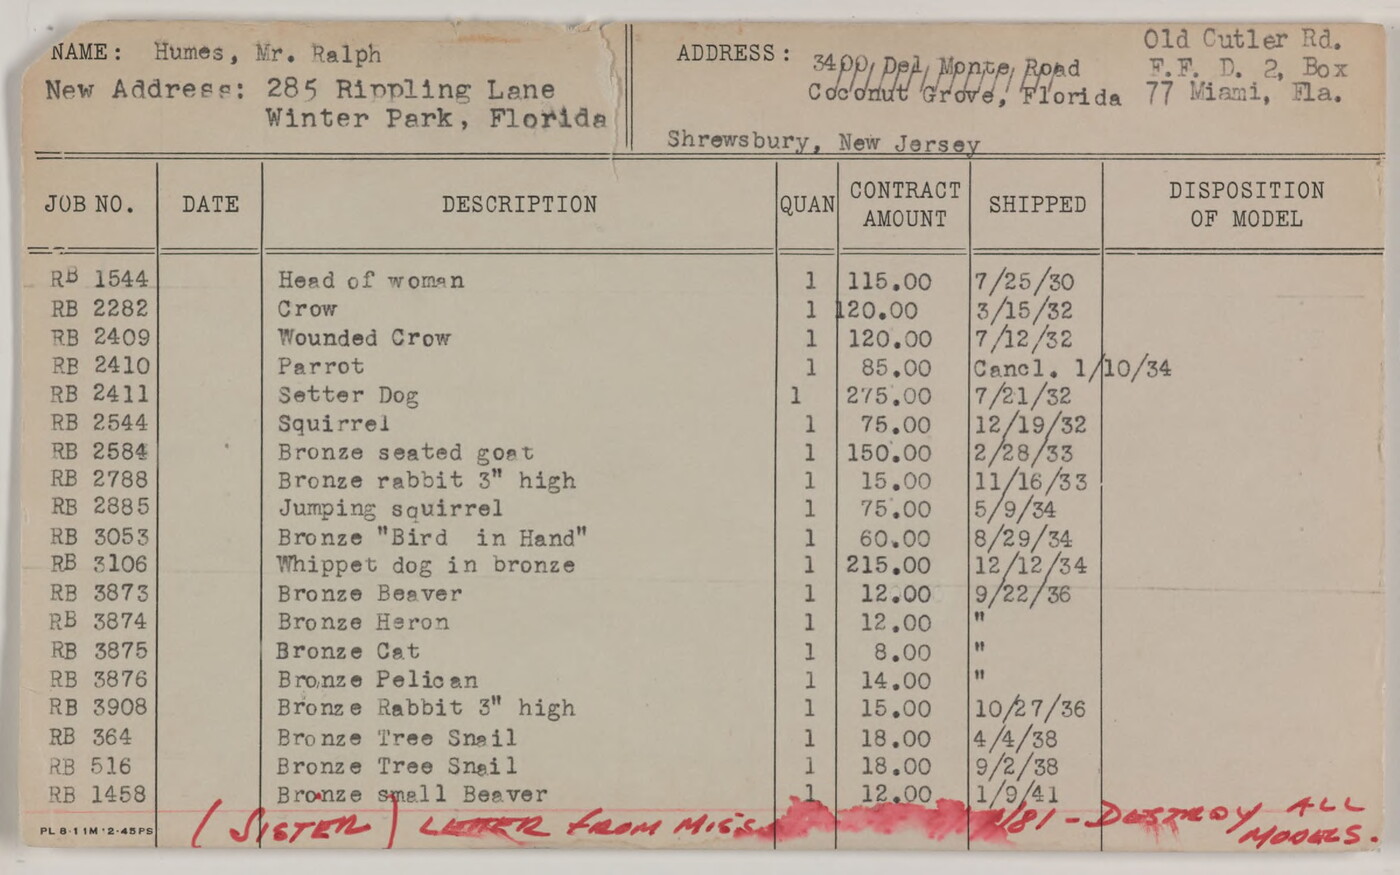 NAME: Humes, Mr. Ralph
New Address: 285 Rippling Lane
Winter Park, Florida
ADDRESS: 3400 Del Monte Road
Coconut Grove, Florida
Old Cutler Rd.
F.F. D. 2, Box
77 Miami, Fla.
Shrewsbury, New Jersey
JOB NO. DATE DESCRIPTION QUAN CONTRACT AMOUNT SHIPPED DISPOSITION OF MODEL
RB 1544 Head of woman 1 115.00 7/25/30
RB 2282 Crow 1 120.00 3/15/32
RB 2409 Wounded Crow 1 120.00 7/12/32
RB 2410 Parrot 1 85.00 Cancl. 1/10/34
RB 2411 Setter Dog 1 275.00 7/21/32
RB 2544 Squirrel 1 75.00 12/19/32
RB 2584 Bronze seated goat 1 150.00 2/28/33
RB 2788 Bronze rabbit 3" high 1 15.00 11/16/33
RB 2885 Jumping squirrel 1 75.00 5/9/34
RB 3053 Bronze "Bird in Hand" 1 60.00 8/29/34
RB 3106 Whippet dog in bronze 1 215.00 12/12/34
RB 3873 Bronze Beaver 1 12.00 9/22/36
RB 3874 Bronze Heron 1 12.00 "
RB 3875 Bronze Cat 1 8.00 "
RB 3876 Bronze Pelican 1 14.00 "
RB 3908 Bronze Rabbit 3" high 1 15.00 10/27/36
RB 364 Bronze Tree Snail 1 18.00 4/4/38
RB 516 Bronze Tree Snail 1 18.00 9/2/38
RB 1458 Bronze small Beaver 1 12.00 1/9/41
(SISTER) LETTER FROM MISS /81 - DESTROY ALL
MODELS.
PL 8-1 1M 2-45PS